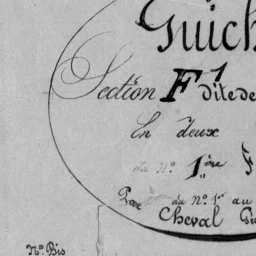 Guich
Section F¹ dite de
En deux
du n° 1ère F
du n° 1er au
Cheval Gu
N° Bis